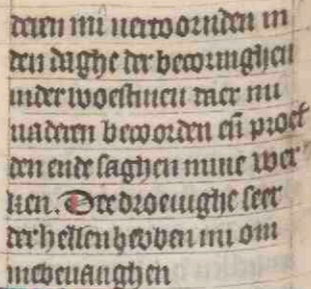 deren mi vertoornden in
den daghe der becoringhen
inder woestinen daer mi
vaderen becorden eñ proef
den ende saghen mine wer
ken. Die droeuighe seer
der hellen hebben mi om
mebeuanghen